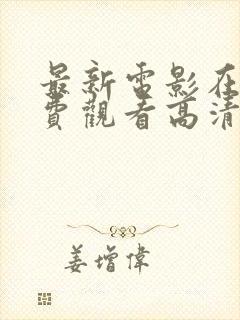 最新電影在
費觀看高清
姜增偉